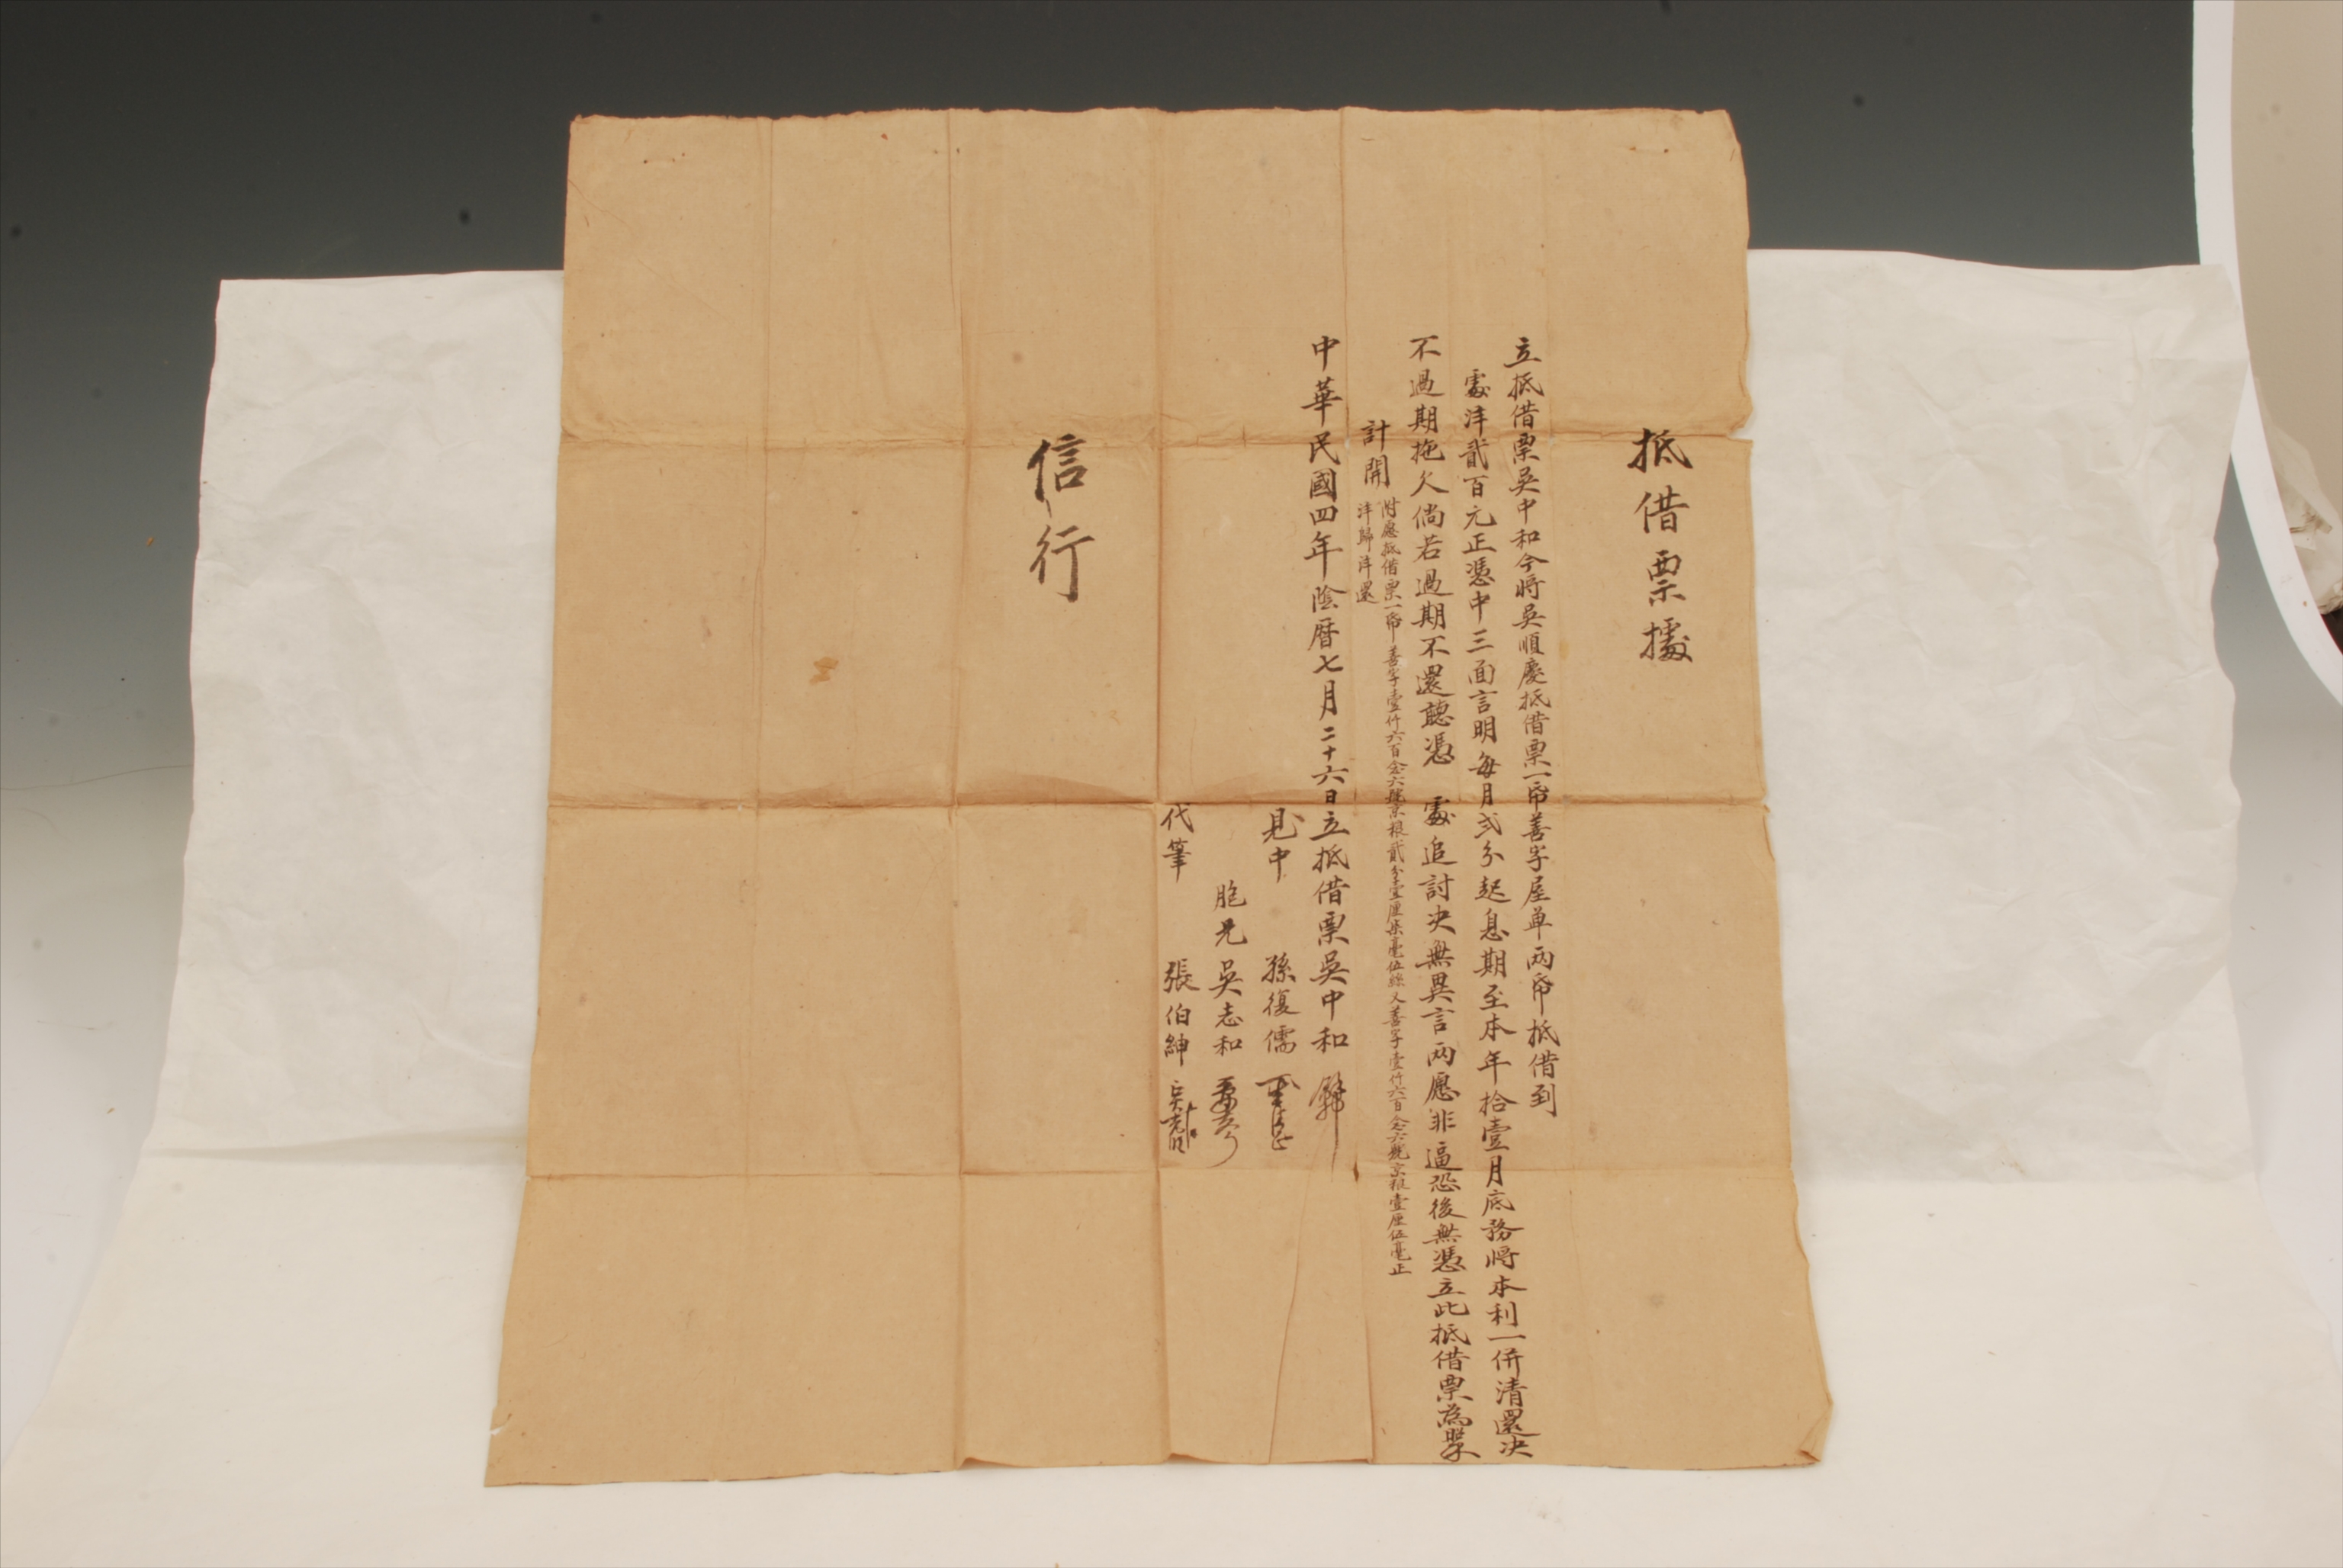 抵借票據
立抵借票吳中和今將吳順慶抵借票一帋善字屋单兩帋抵借到
處洋貳百元正憑中三面言明每月弍分起息期至本年拾壹月底務將本利一併清還决
不過期拖欠倘若過期不還聽憑 處追討决無異言兩愿非逼恐後無憑立此抵借票為㨿
計開
附慶抵借票一帋 善字壹仟六百念六號京粮貳分壹厘柒毫伍絲 又善字壹仟六百念六號京粮壹厘伍毫正
洋歸洋還
中華民國四年陰曆七月二十六日立抵借票吳中和
見中 孫復儒
胞兄 吳志和
代筆 張伯紳
信行